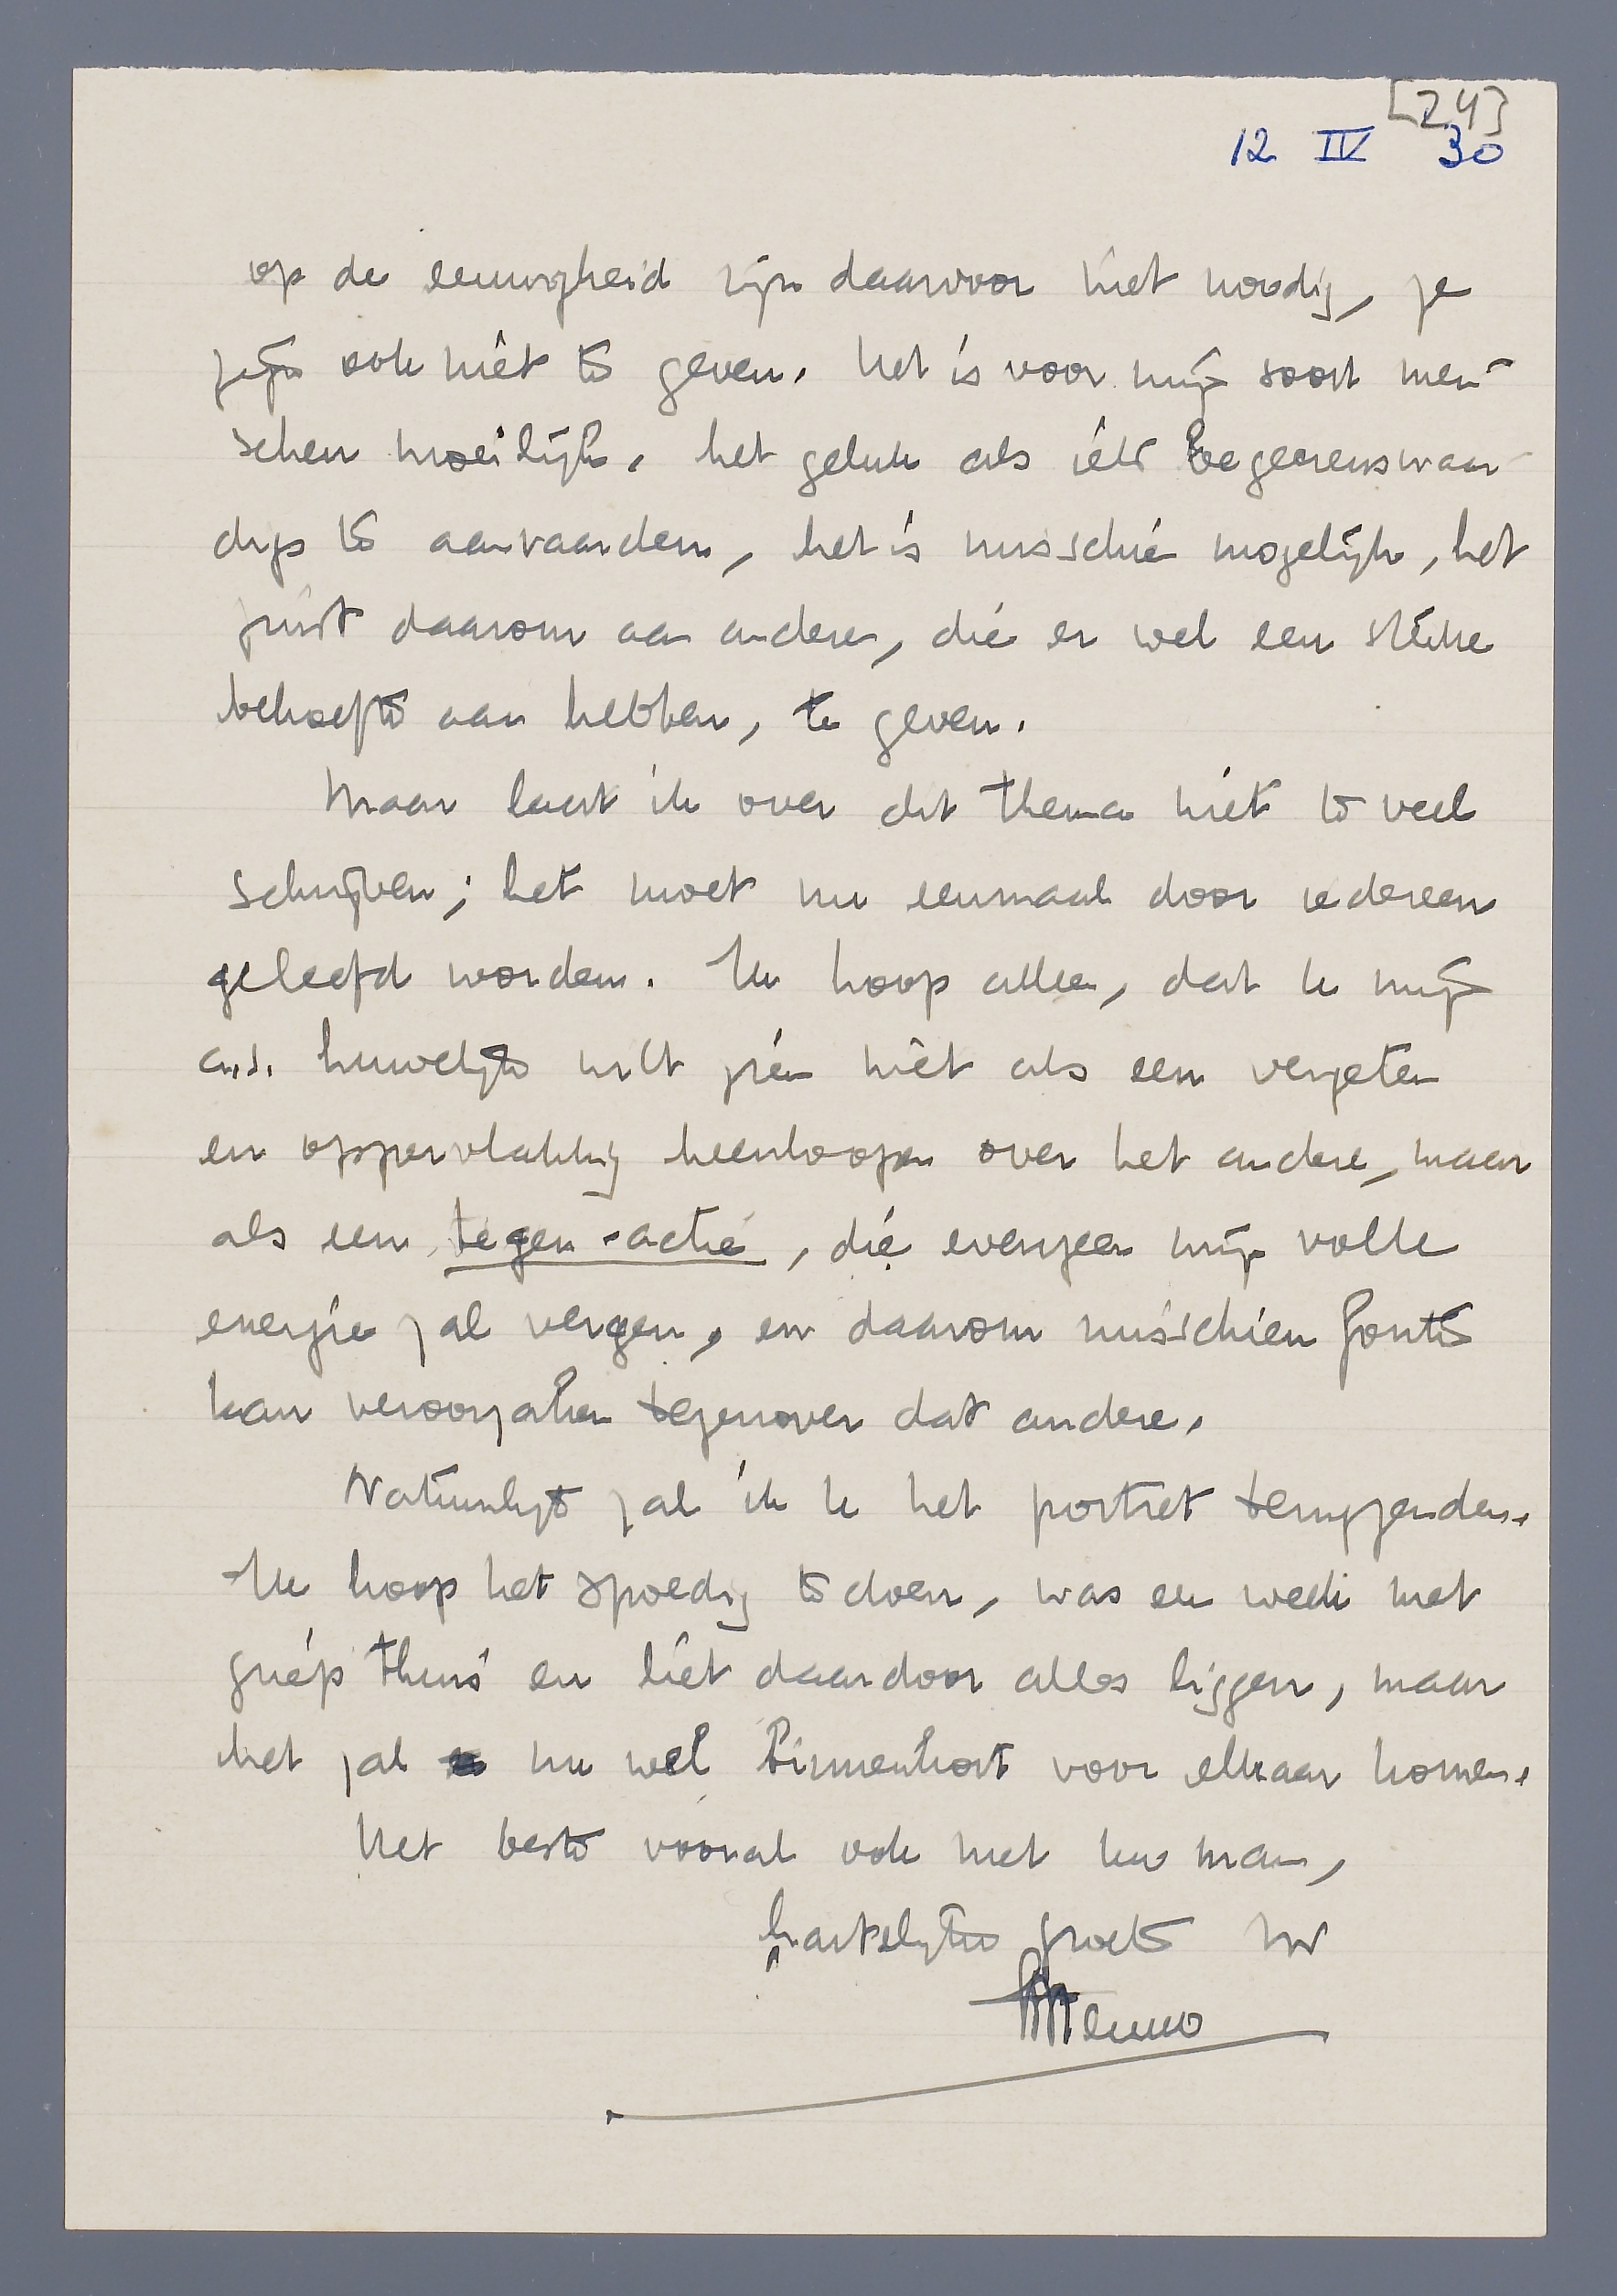 [24]
12 IV 30
op de eeuwigheid zijn daarvoor niet noodig, ze
zijn ook niet te geven. Het is voor mijn soort men-
schen moeilijk, het geluk als iets begeerenswaar-
digs te aanvaarden, het is misschien mogelijk, het
juist daarom aan anderen, die er wel een sterke
behoefte aan hebben, te geven.
Maar laat ik over dit thema niet te veel
schrijven; het moet nu eenmaal door iedereen
geleefd worden. Ik hoop alleen, dat U mijn
a.s. huwelijk wilt zien niet als een vergeten
en oppervlakkig heenloopen over het andere, maar
als een tegen-actie, die evenzeer mijn volle
energie zal vergen, en daarom misschien fouten
kan veroorzaken tegenover dat andere.
Natuurlijk zal ik U het portret terugzenden.
Ik hoop het spoedig te doen, was een week met
griep thuis en liet daardoor alles liggen, maar
het zal nu wel binnenkort voor elkaar komen.
Het beste vooral ook met Uw man,
hartelijke groeten Uw
Menno